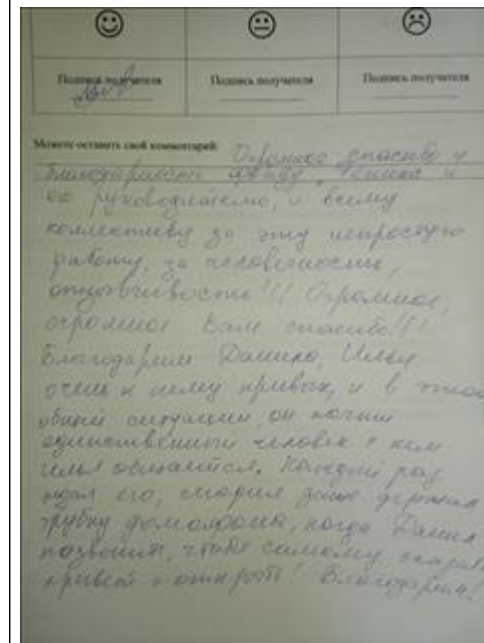 Подпись получателя Подпись получателя Подпись получателя
Можете оставить свой комментарий: Огромное спасибо и
благодарность и
её руководителю, и всему
коллективу за эту непростую
работу, за человечность,
отзывчивость!!! Огромное,
огромное Вам спасибо!!!
Благодарим Данила, Илья
очень к нему привык, и в
общей ситуации он почти
единственный человек с кем
Илья общается. Каждый раз
ждал его, держал
трубку домофона, когда Данил
позвонит, чтобы самому сказать
привет и открыть! Благодарим!